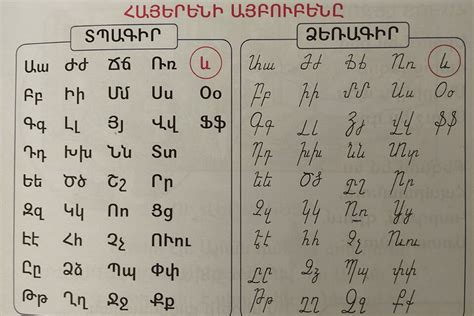 ՀԱՅԵՐԵՆԻ ԱՅԲՈՒԲԵՆԸ
ՏՊԱԳԻՐ
Աա Ժժ Ճճ Ռռ և
Բբ Իի Մմ Սս Օօ
Գգ Լլ Յյ Վվ Ֆֆ
Դդ Խխ Նն Տտ
Եե Ծծ Շշ Րր
Զզ Կկ Ոո Ցց
Էէ Հհ Չչ ՈՒու
Ըը Ձձ Պպ Փփ
Թթ Ղղ Ջջ Քք
ՁԵՌԱԳԻՐ
Աա Ժժ Ճճ Ռռ և
Բբ Իի Մմ Սս Օօ
Գգ Լլ Յյ Վվ Ֆֆ
Դդ Խխ Նն Տտ
Եե Ծծ Շշ Րր
Զզ Կկ Ոո Ցց
Էէ Հհ Չչ Ուու
Ըը Ձձ Պպ Փփ
Թթ Ղղ Ջջ Քք